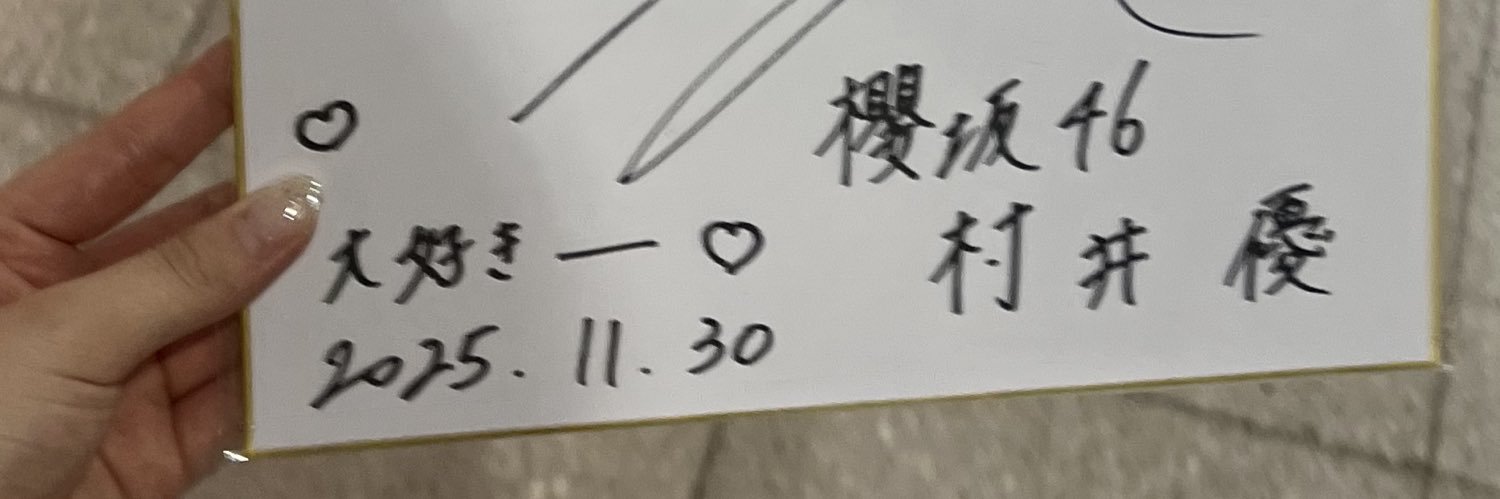 櫻坂46
村井 優
♡
大好きー♡
2025.11.30